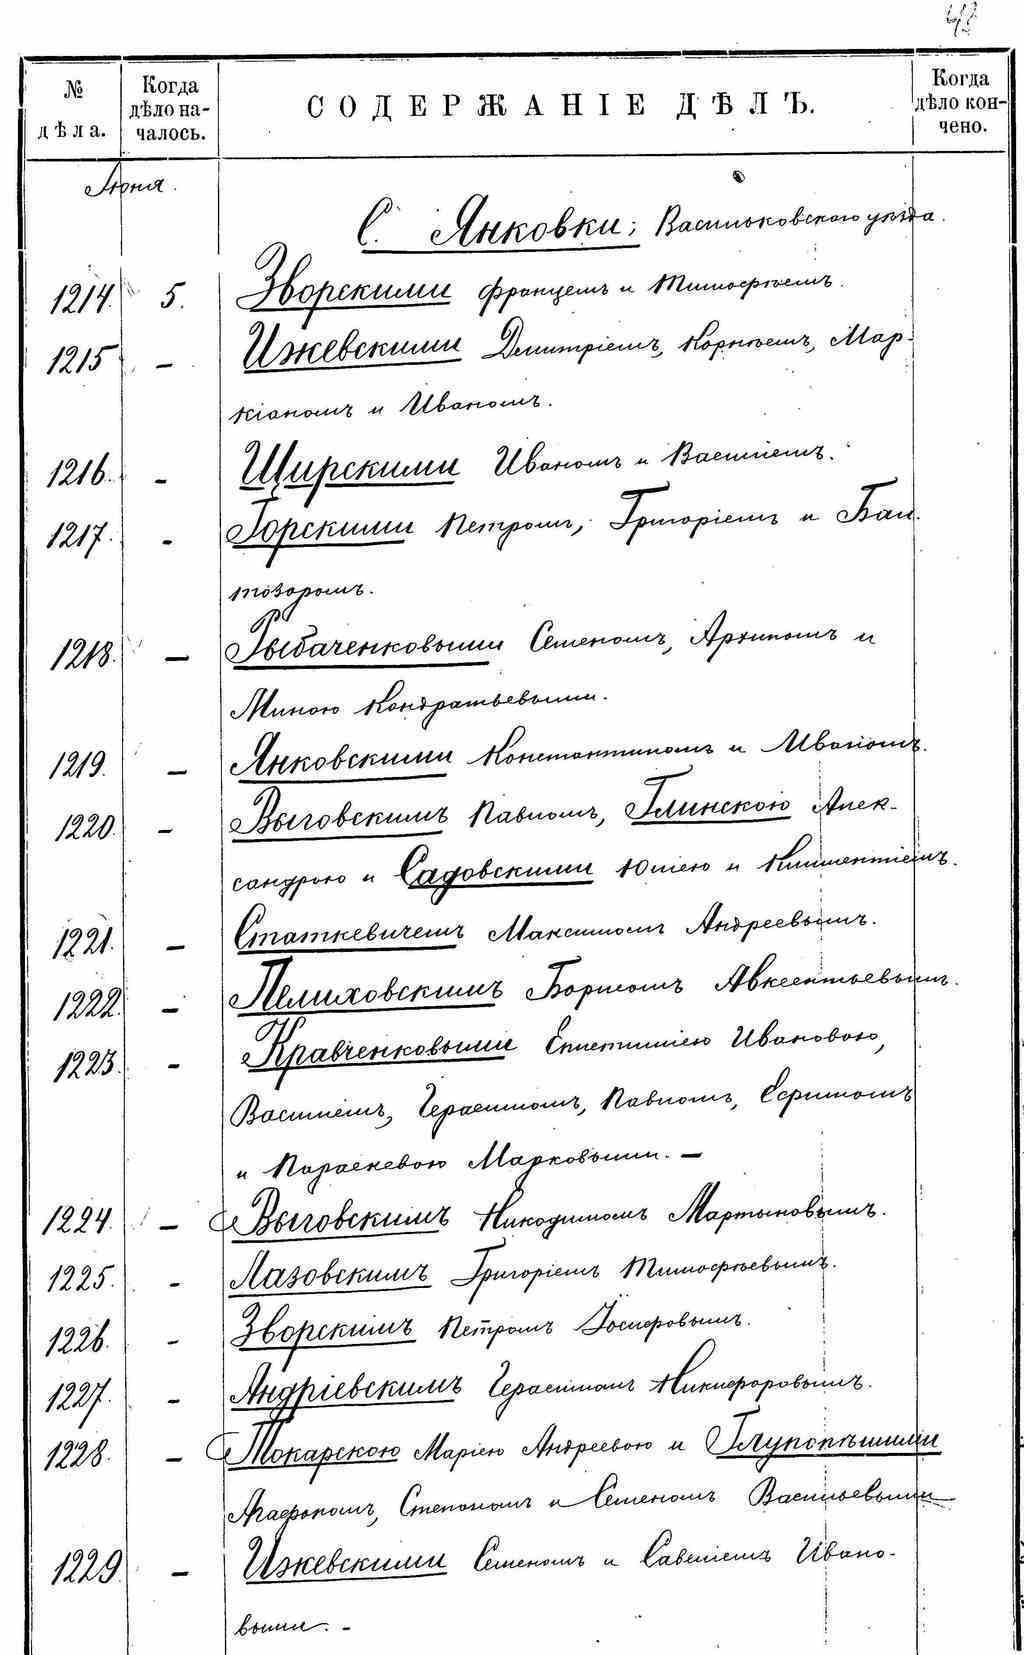 № дѣла. Когда дѣло началось. СОДЕРЖАНІЕ ДѢЛЪ. Когда дѣло кончено.
Іюня.
С. Янковки; Васильковскаго уѣзда.
1214. 5. Зворскими Францемъ и Тимофѣемъ.
1215 – Ижевскими Дмитріемъ, Корнѣемъ, Мар-
кіаномъ и Иваномъ.
1216. – Щирскими Иваномъ и Василіемъ.
1217. – Горскими Петромъ, Григоріемъ и
1218. – Рыбаченковыми Семеномъ, Архипомъ и
Миною Кондратьевыми.
1219. – Янковскими Константиномъ и Иваномъ.
1220. – Выговскимъ Павломъ, Глинскою Алек-
сандрою и Садовскими Юліею и Климентіемъ.
1221. – Статкевичемъ Максимомъ Андреевымъ.
1222. – Пелиховскимъ Борисомъ Авксентьевымъ.
1223. – Кравченковыми Епистиміею Ивановою,
Василіемъ, Герасимомъ, Павломъ, Ефимомъ
и Параскевою Марковыми. –
1224. – Выговскимъ Никодимомъ Мартыновымъ.
1225. – Лазовскимъ Григоріемъ Тимофѣевымъ.
1226. – Зворскимъ Петромъ Іосифовымъ.
1227. – Андріевскимъ Герасимомъ Никифоровымъ.
1228. – Токарскою Маріею Андреевою и Глупопѣшими
Агафономъ, Степаномъ и Семеномъ Васильевыми
1229. – Ижевскими Семеномъ и Савеліемъ Ивано-
выми. –